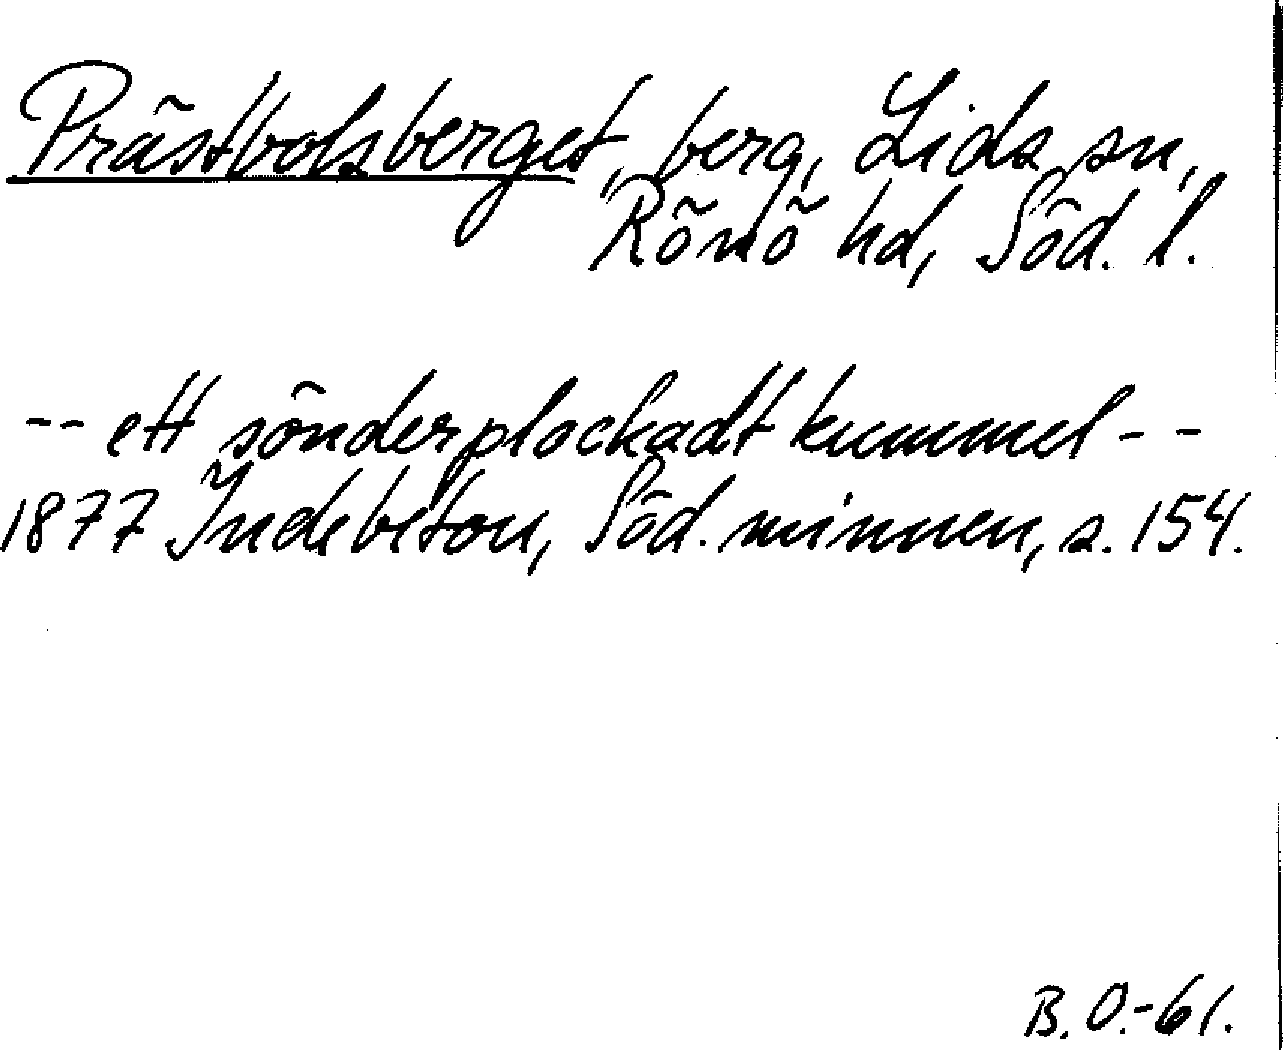 Prästbolsberget, berg, Lids sn,
Rönö hd, Söd. l.
-- ett sönderplockadt kummel --
1877 Indebetou, Söd. minnen, s. 154.
B. O.-61.